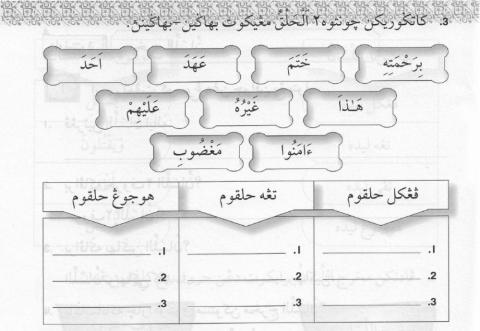 3. كاتݢوريكن چونتوه٢ اَلْحَلْقُ مڠيكوت بهاݢين–بهاݢينڽ.
بِرَحْمَتِهِ خَتَمَ عَهَدَ اَحَدَ
هَـٰذَا غَيْرُهُ عَلَيْهِمْ
ءَامَنُوا مَغْضُوبِ
ڤڠكل حلقوم تڠه حلقوم هوجوڠ حلقوم
1. 1. 1.
2. 2. 2.
3. 3. 3.